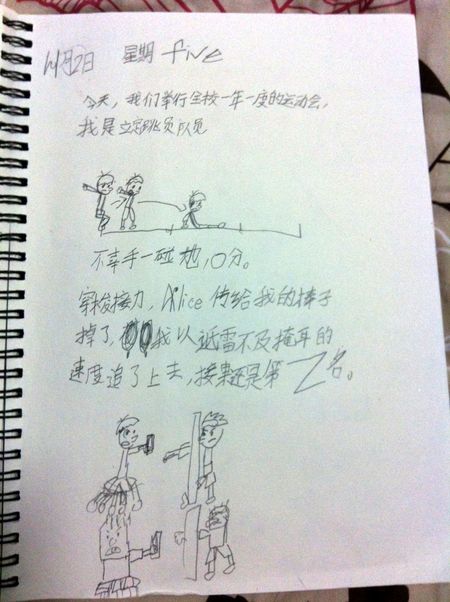 11月2日 星期 five
今天，我们举行全校一年一度的运动会，
我是立定跳员队员
不幸手一碰地，0分。
穿梭接力，Alice传给我的棒子
掉了，我以迅雪不及掩耳的
速度追了上去，接果还是第2名。